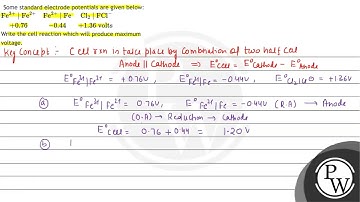 Some standard electrode potentials are given below:
Fe³⁺ | Fe²⁺ Fe²⁺ | Fe Cl₂ | PCl⁻
+0.76 −0.44 +1.36 volts
Write the cell reaction which will produce maximum
voltage.
Key Concept :- Cell rxn to take place by Combination of two half Cell
Anode || Cathode ⇒ E°Cell = E°Cathode − E°Anode
E°Fe³⁺|Fe²⁺ = +0.76V, E°Fe²⁺|Fe = −0.44V, E°Cl₂|Cl⊖ = +1.36V
(a) E°Fe³⁺|Fe²⁺ = 0.76V, E°Fe²⁺|Fe = −0.44V (R.A) → Anode
(O.A) → Reduction → Cathode
E°Cell = 0.76 + 0.44 = 1.20V
(b)
PW